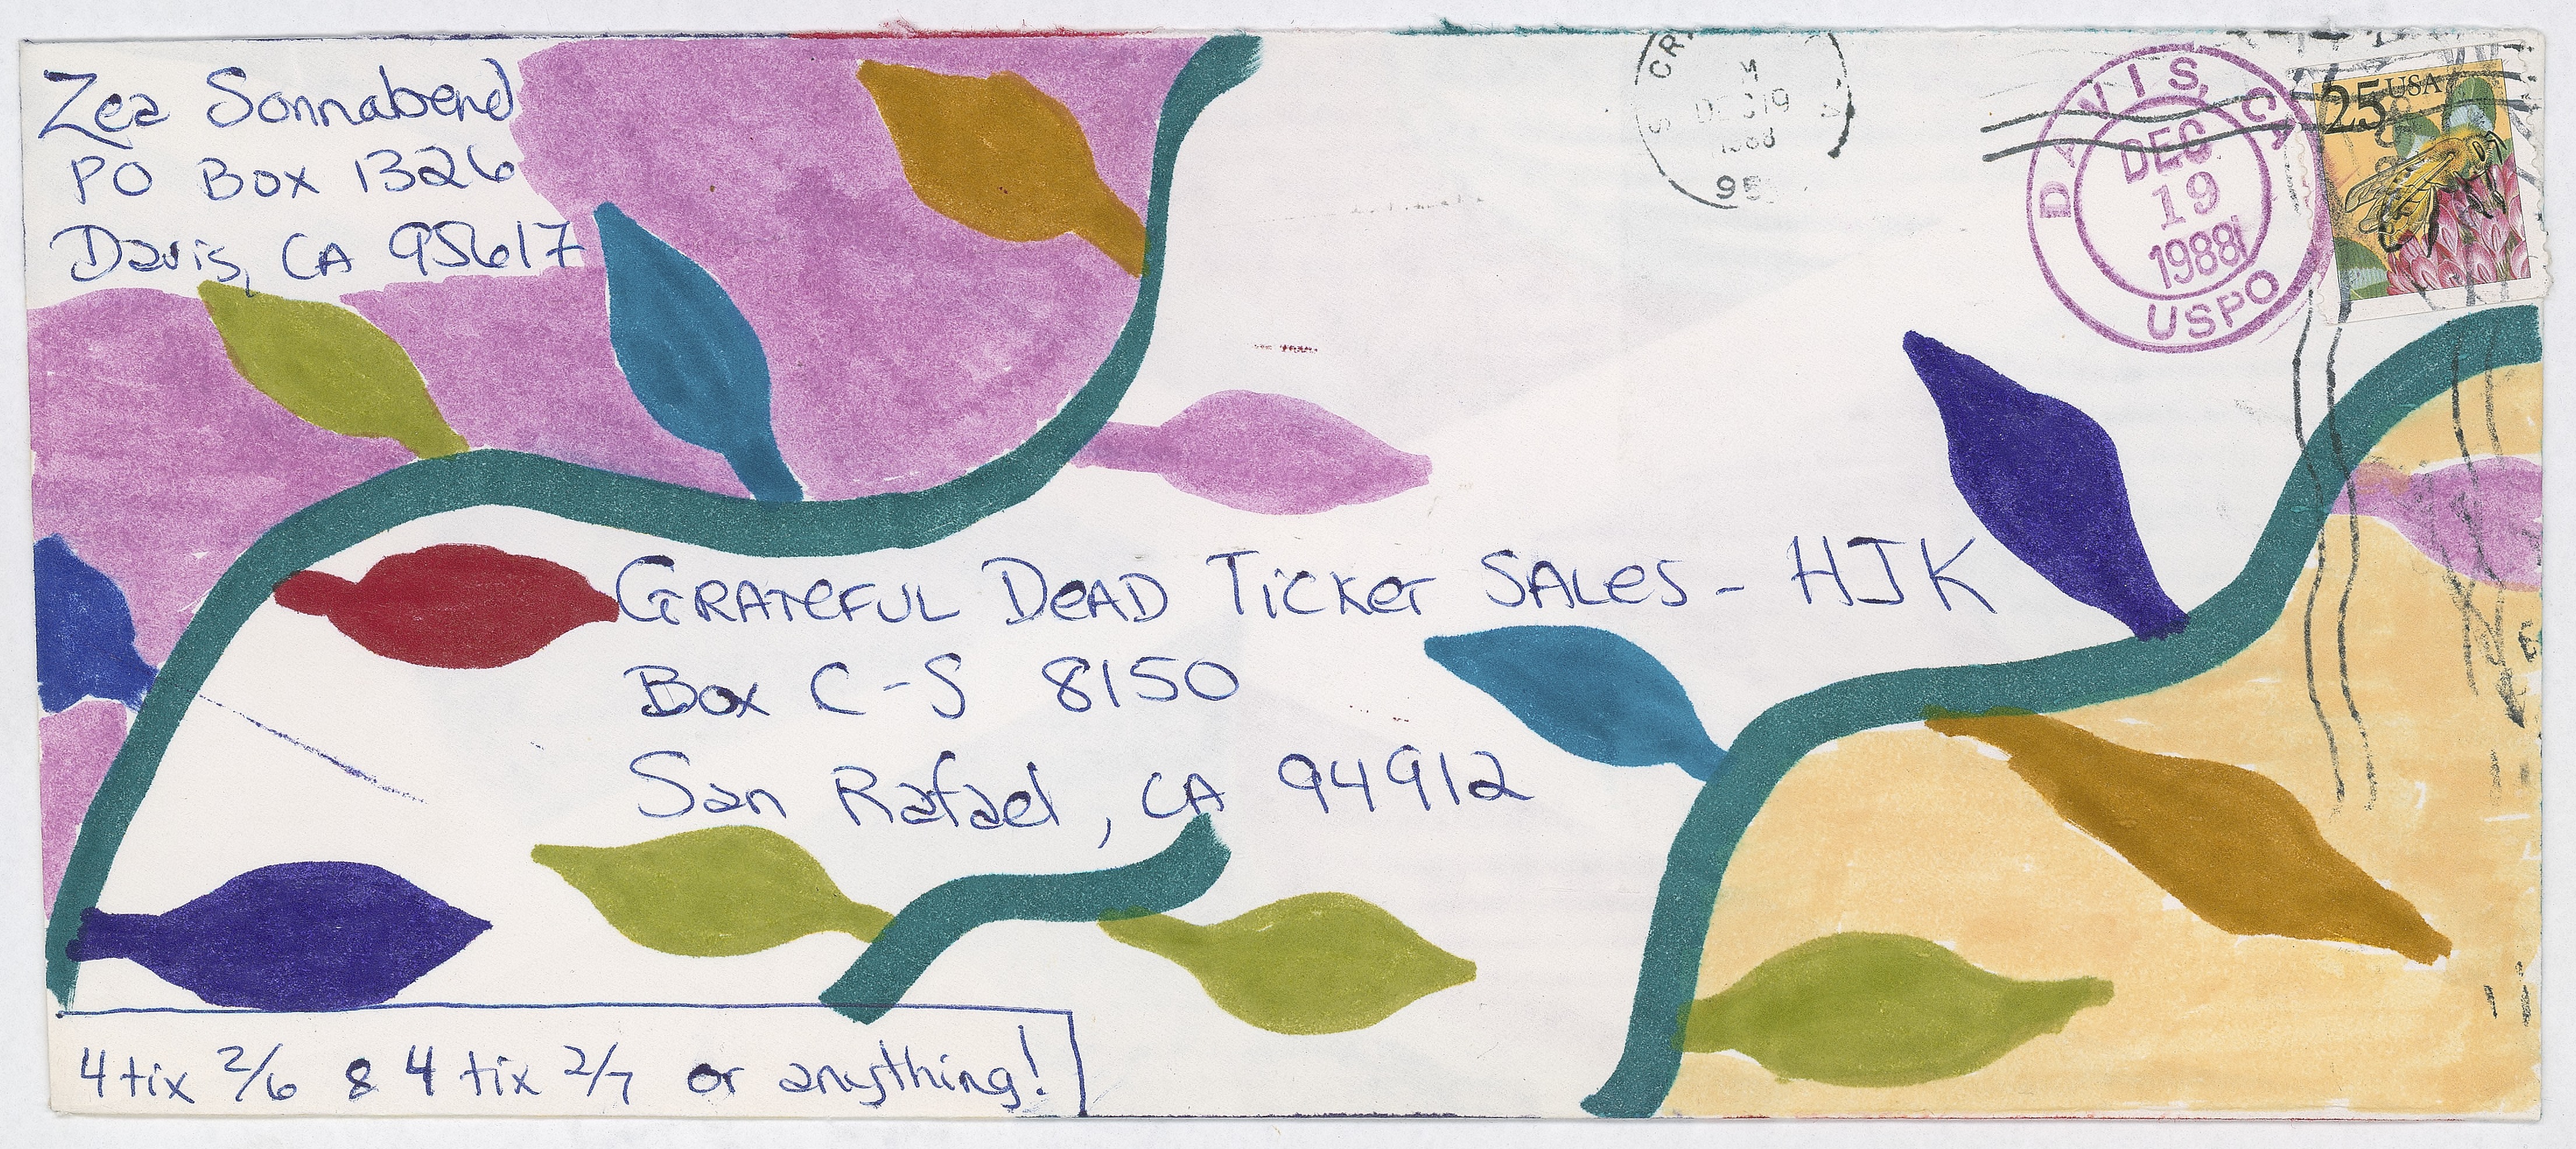 Zea Sonnabend
PO Box 1326
Davis, CA 95617
DEC 19
1988
95
DAVIS, CA
DEC
19
1988
USPO
25 USA
GRATEFUL DEAD TICKET SALES - HJK
Box C-S 8150
San Rafael, CA 94912
4 tix 2/6 & 4 tix 2/7 or anything!